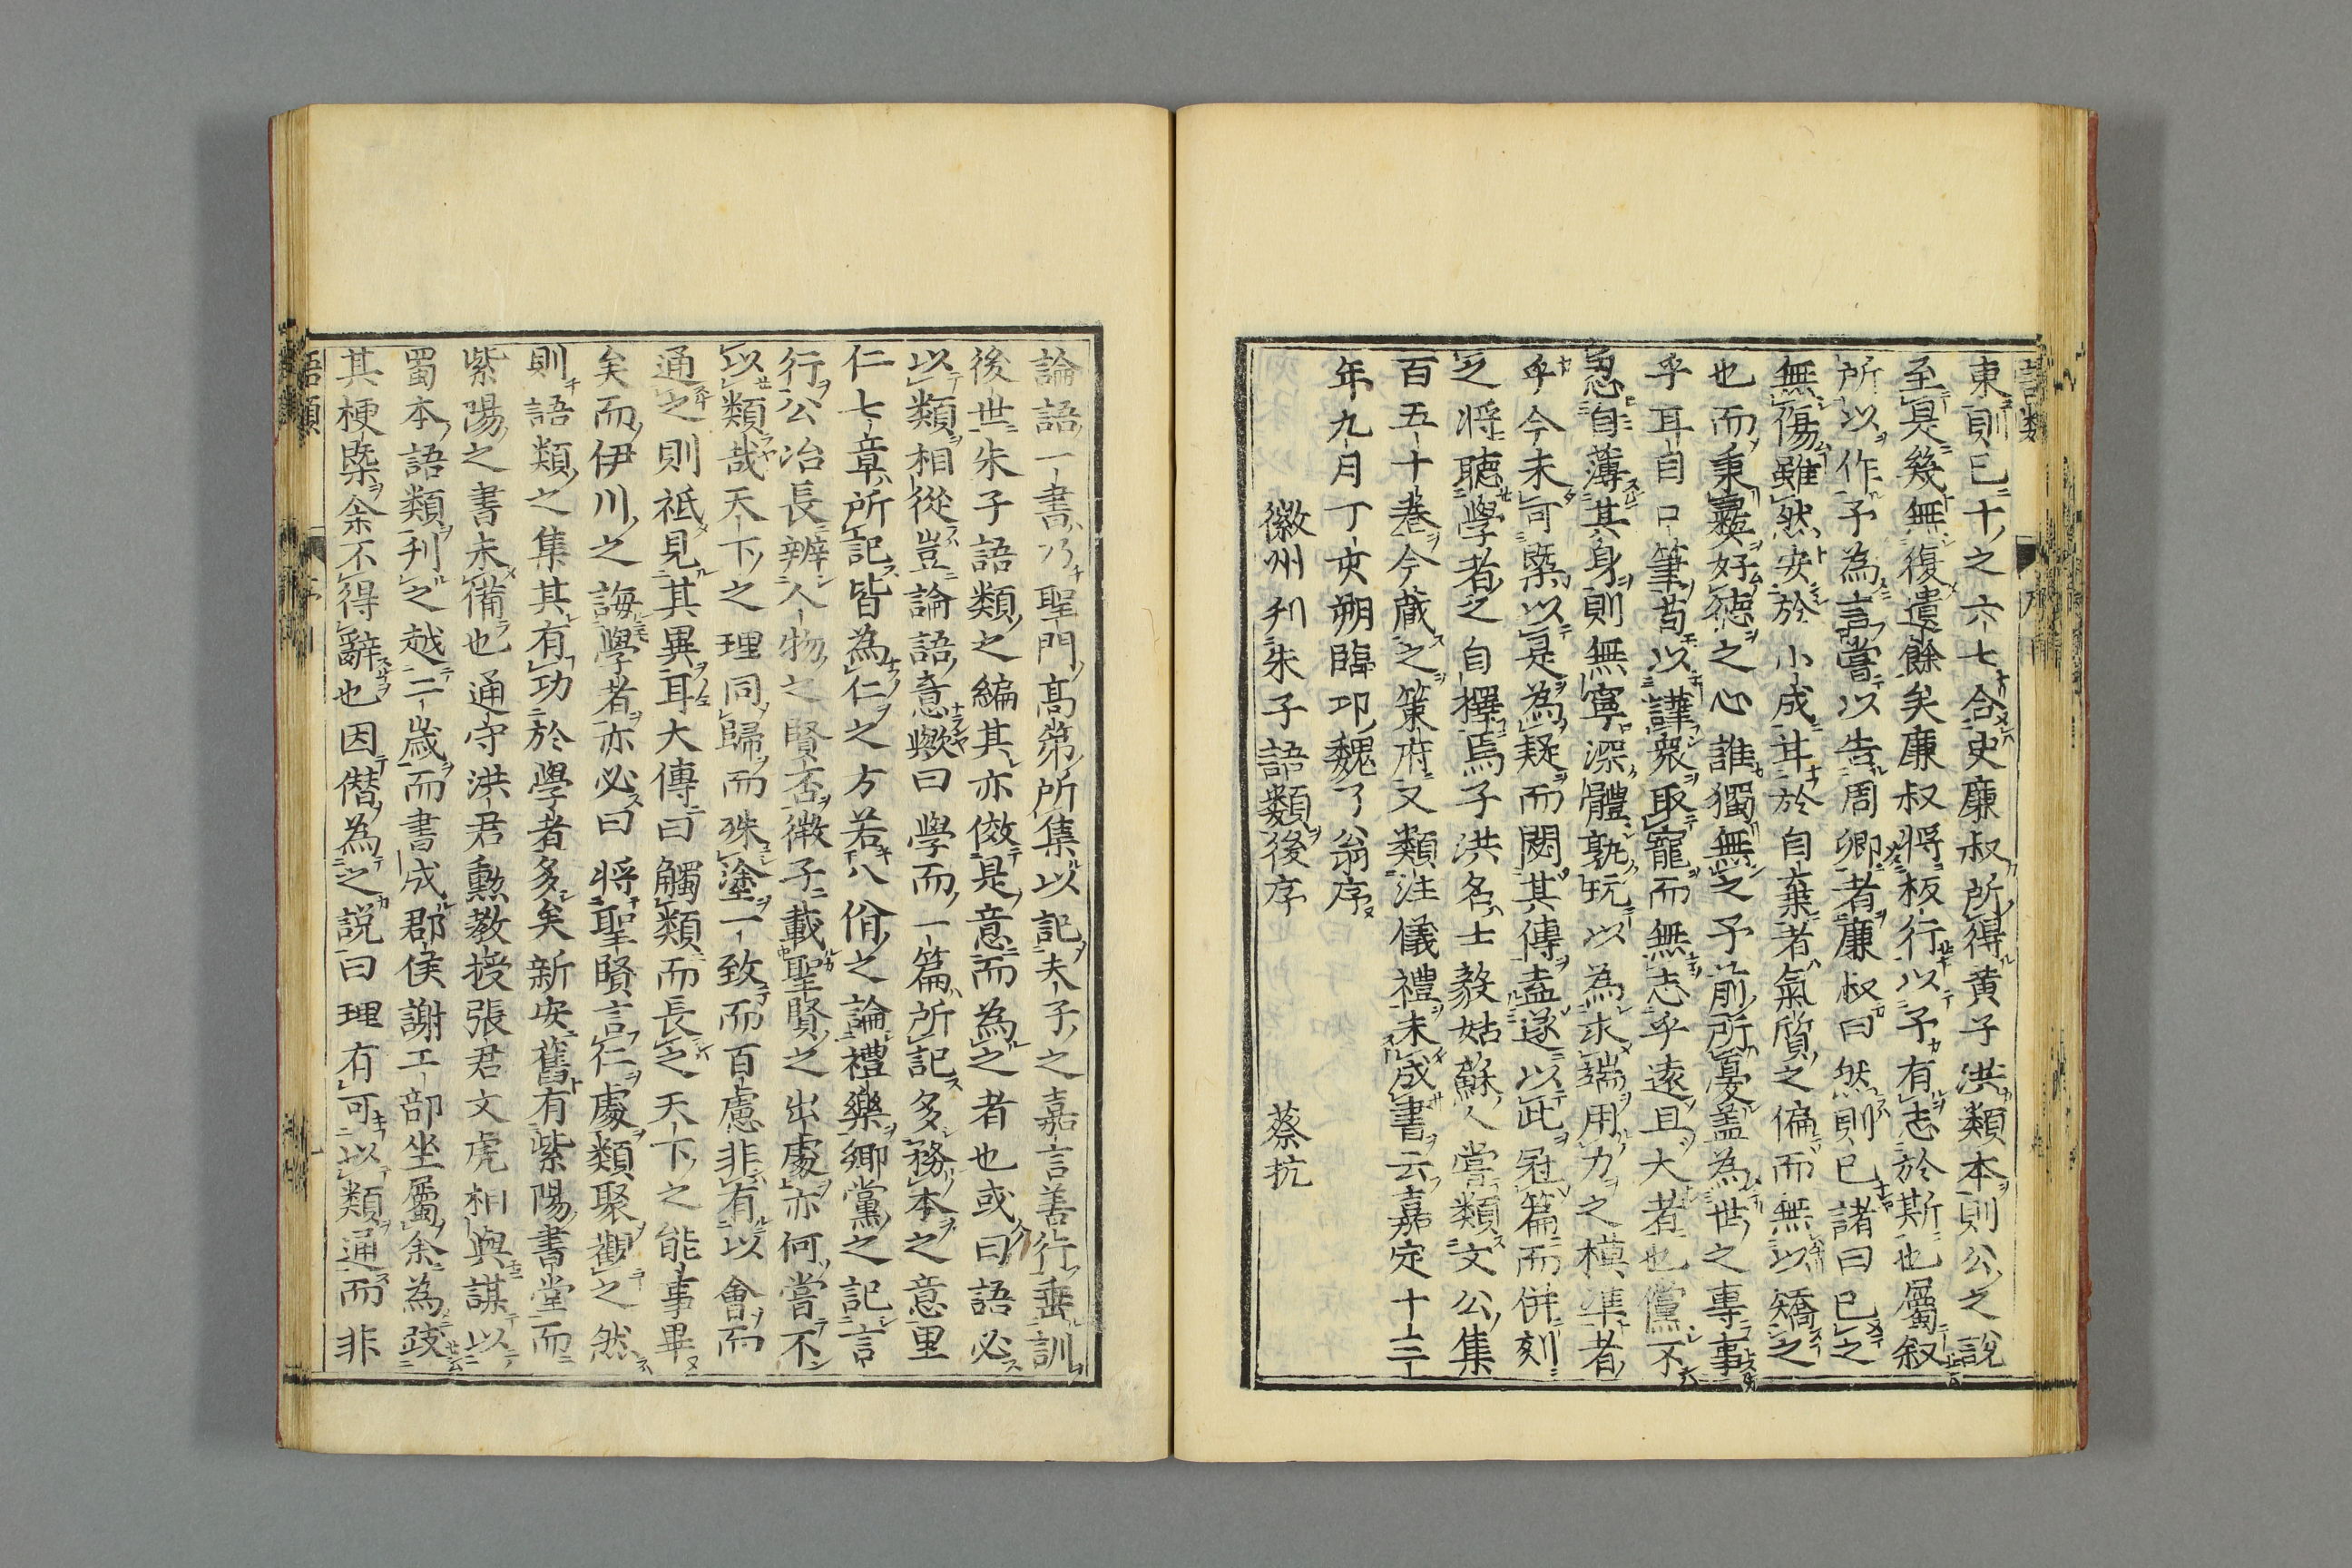 東則已十之六七合史廉叔所得黄子洪類本則公之說
至是幾無復遺餘矣廉叔将板行以予有志於斯也屬叙
所以作予為言嘗以告周卿者廉叔曰然則已諸曰已之
無傷雖然安於小成甘於自棄者氣質之偏而無以矯之
也而秉彝好德之心誰獨無之予前所憂蓋為世之專事
乎耳自口筆苟以譁衆取寵而無志乎遠且大者也儻不
忍自薄其身則無寧深體熟玩以為求端用力之模準者
乎今未可槩以是為疑而閟其傳盍遂以此冠篇而併刻
之将聴學者之自擇焉子洪名士毅姑蘇人嘗類文公集
百五十巻今蔵之策府又類注儀禮未成書云嘉定十三
年九月丁亥朔臨卭魏了翁序
徽州刋朱子語類後序　蔡抗
論語一書乃聖門髙第所集以記夫子之嘉言善行垂訓
後世朱子語類之編其亦倣是意而為之者也或曰語必
以類相從豈論語意歟曰學而一篇所記多務本之意里
仁七章所記皆為仁之方若八佾之論禮樂郷黨之記言
行公冶長辨人物之賢否微子載聖賢之出處亦何嘗不
以類哉天下之理同歸而殊塗一致而百慮非有以會而
通之則祗見其異耳大傳曰觸類而長之天下之能事畢
矣而伊川之誨學者亦必曰将聖賢言仁處類聚觀之然
則語類之集其有功於學者多矣新安舊有紫陽書堂而
紫陽之書未備也通守洪君勳教授張君文虎相與謀以
蜀本語類刋之越二歳而書成郡侯謝工部坐屬余為跂
其梗槩余不得辭也因僣為之說曰理有可以類通而非